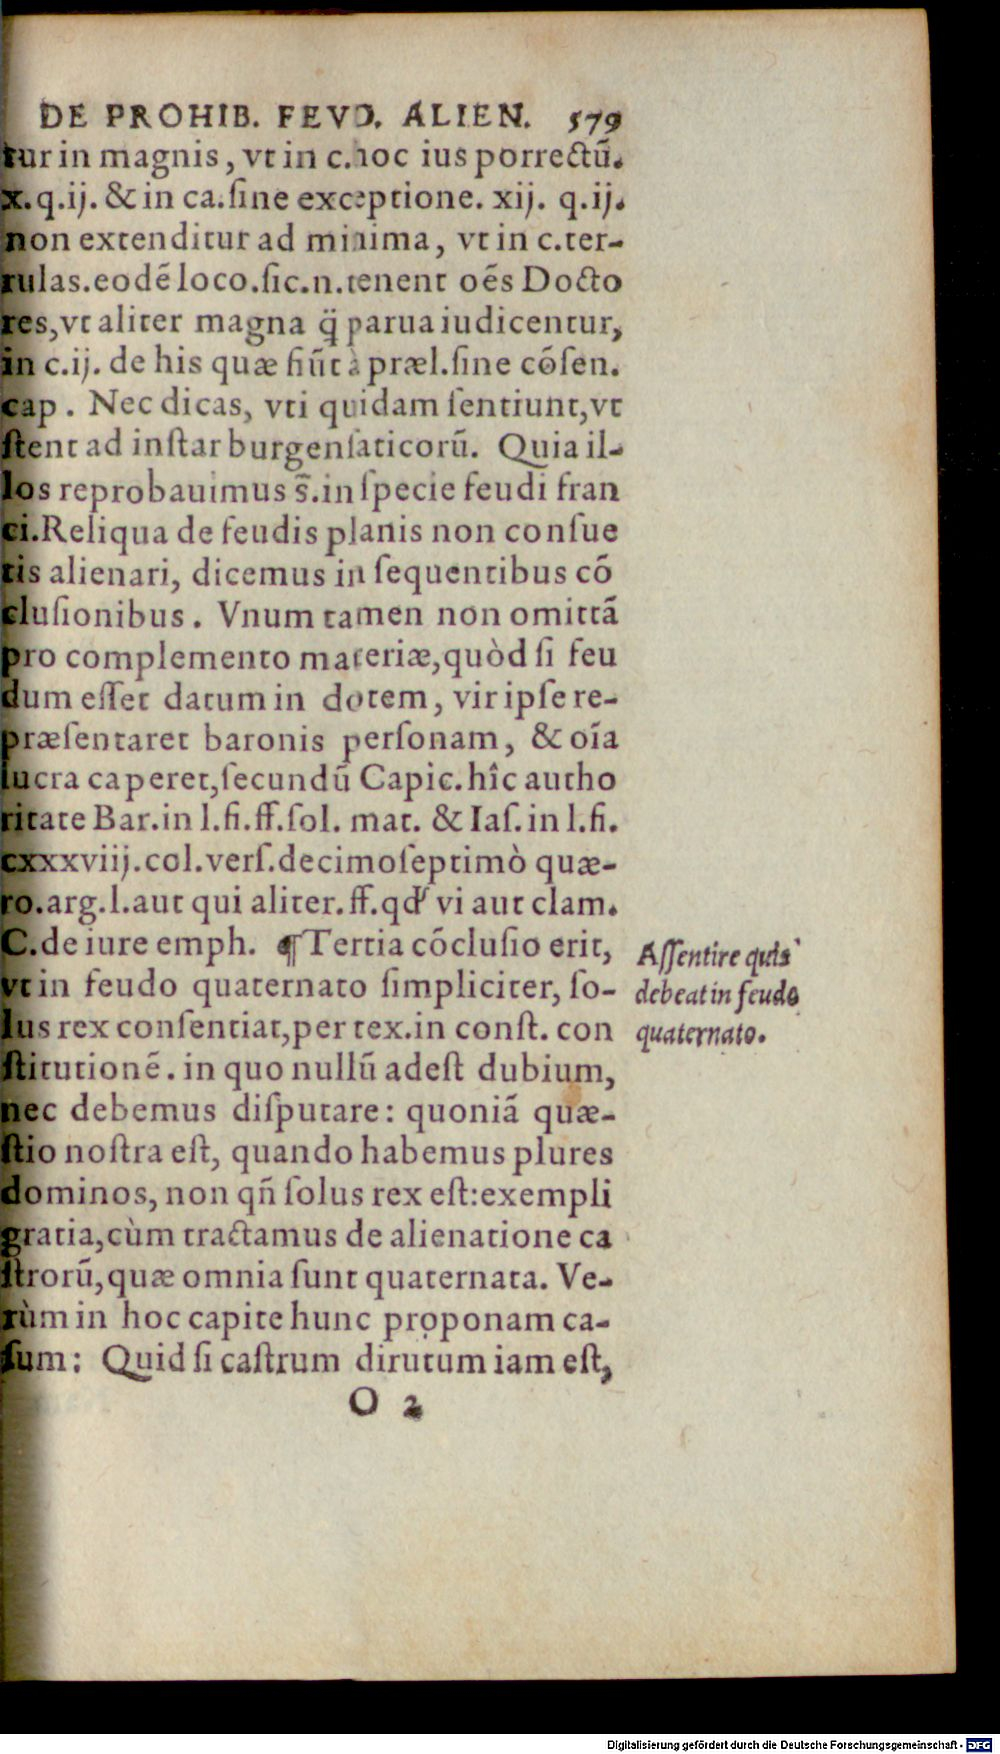 DE PROHIB. FEVD. ALIEN. 579
tur in magnis, vt in c. hoc ius porrectũ.
x.q.ij. & in ca.ſine exceptione. xij. q.ij.
non extenditur ad minima, vt in c.ter-
rulas.eodẽ loco.ſic.n.tenent oẽs Docto
res,vt aliter magna q̃ parua iudicentur,
in c.ij. de his quæ fiũt à præl.ſine cõſen.
cap. Nec dicas, vti quidam ſentiunt,vt
ſtent ad inſtar burgenſaticorũ. Quia il-
los reprobauimus s̃.in ſpecie feudi fran
ci.Reliqua de feudis planis non conſue
tis alienari, dicemus in ſequentibus cõ
cluſionibus. Vnum tamen non omittã
pro complemento materiæ,quòd ſi feu
dum eſſet datum in dotem, vir ipſe re-
præſentaret baronis perſonam, & oĩa
lucra caperet,ſecundũ Capic.hîc autho
ritate Bar.in l.fi.ff.ſol. mat. & Iaſ.in l.fi.
cxxxviij.col.verſ.decimoſeptimò quæ-
ro.arg.l.aut qui aliter.ff.qđ vi aut clam.
C.de iure emph. ¶Tertia cõcluſio erit,
vt in feudo quaternato ſimpliciter, ſo-
lus rex conſentiat,per tex.in conſt. con
ſtitutionẽ. in quo nullũ adeſt dubium,
nec debemus diſputare: quoniã quæ-
ſtio noſtra eſt, quando habemus plures
dominos, non qñ ſolus rex eſt:exempli
gratia,cùm tractamus de alienatione ca
ſtrorũ,quæ omnia ſunt quaternata. Ve-
rùm in hoc capite hunc proponam ca-
ſum: Quid ſi caſtrum dirutum iam eſt,
O 2
Aſſentire quis
debeat in feudo
quaternato.
Digitalisierung gefördert durch die Deutsche Forschungsgemeinschaft - DFG